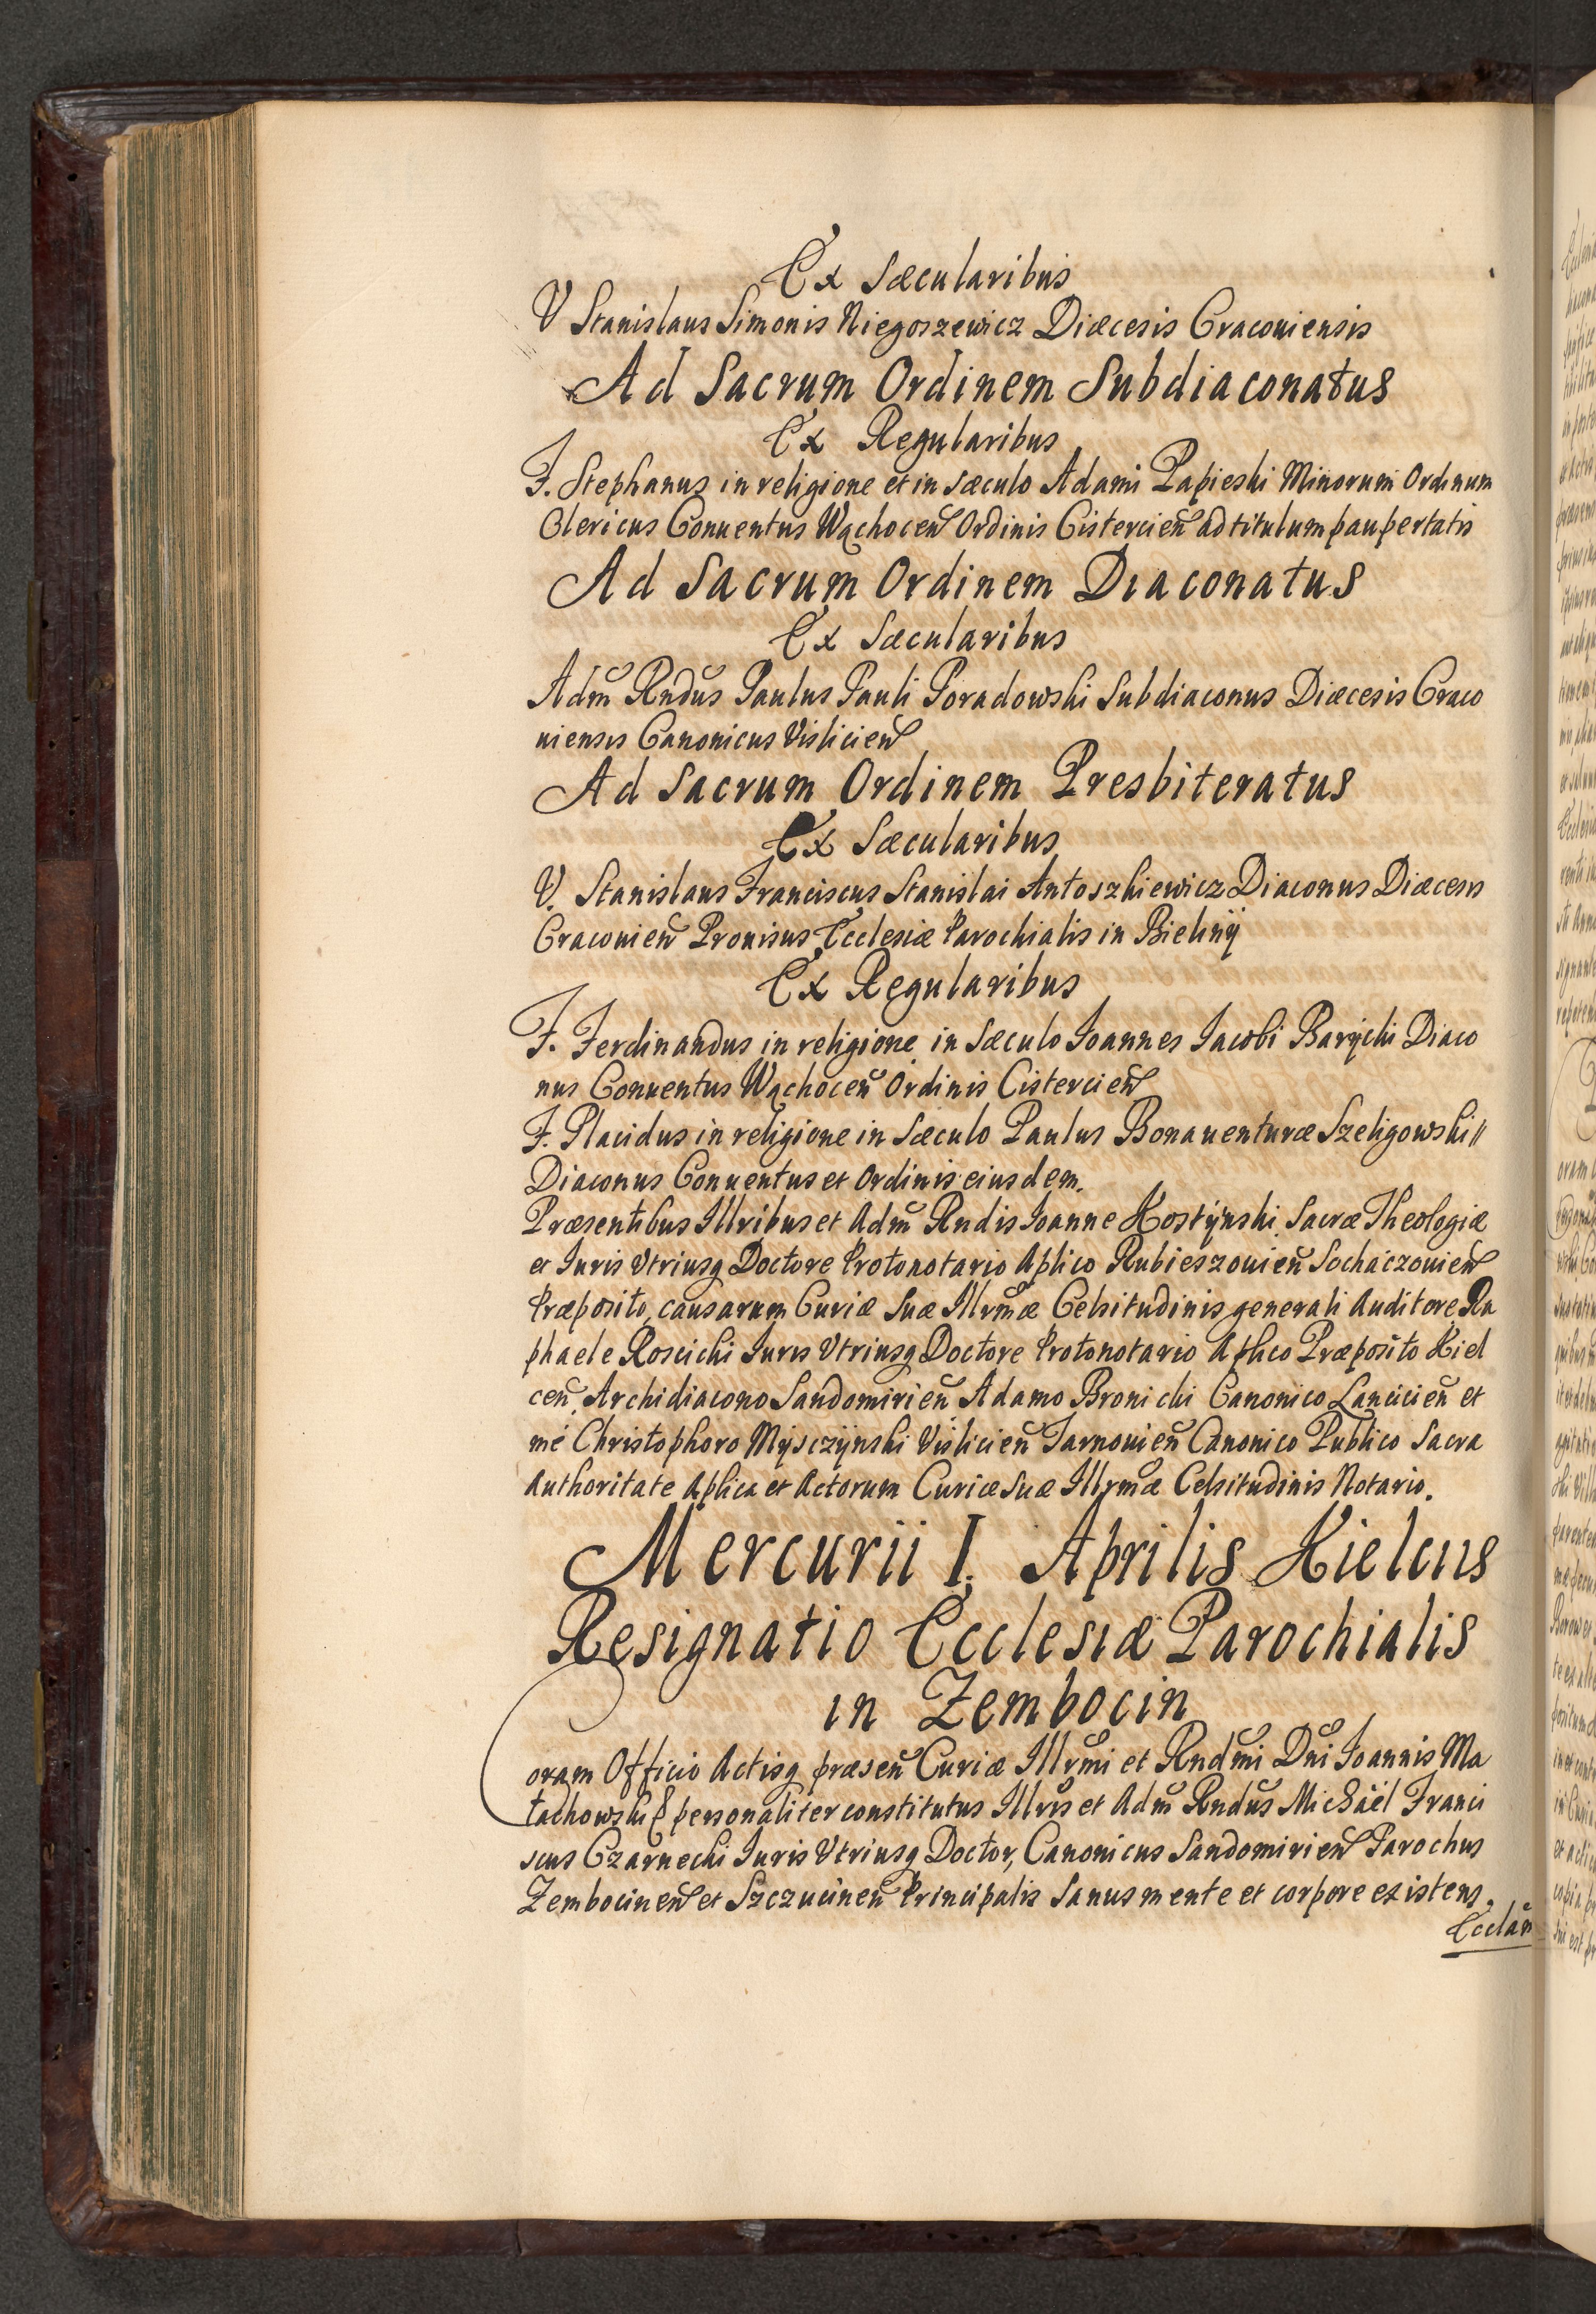 Ex Sæcularibus
V Stanislaus Simonis Niegoszewicz Diæcesis Cracouiensis
Ad Sacrum Ordinem Subdiaconatus
Ex Regularibus
F. Stephanus in religione et in sæculo Adami Papieski Minorum Ordinum
Clericus Conuentus Wąchoceñ Ordinis Cistercieñ ad titulum paupertatis
Ad Sacrum Ordinem Diaconatus
Ex Sæcularibus
Adm̃ Rndũs Paulus Pauli Poradowski Subdiaconus Diæcesis Craco
uiensis Canonicus Vislicieñ
Ad Sacrum Ordinem Presbiteratus
Ex Sæcularibus
V. Stanislaus Franciscus Stanislai Antoszkiewicz Diaconus Diæcesis
Cracouieñ Prouisus Ecclesiæ Parochialis in Bielinÿ
Ex Regularibus
F. Ferdinandus in religione in Sæculo Joannes Jacobi Barÿcki Diaco
nus Conuentus Wąchoceñ Ordinis Cistercieñ
F. Placidus in religione in Sæculo Paulus Bonauenturæ Szeligowski //
Diaconus Conuentus et Ordinis eiusdem.
Præsentibus Illribus et Adm̃ Rndis Joanne Kostÿnski Sacræ Theologiæ
et Juris Vtriusq Doctore Protonotario Aplico Rubieszouieñ Sochaczouieñ
Præposito, causarum Curiæ Suæ Illrm̃æ Celsitudinis generali Auditore, Ra
phaele Roscicki Juris Vtriusq Doctore Protonotario Aplico Præposito Kiel
ceñ Archidiacono Sandomirieñ Adamo Bronicki Canonico Lancicieñ et
me Christophoro Mÿsczÿnski Vislicieñ Tarnouieñ Canonico Publico Sacra
Authoritate Aplica et Actorum Curiæ Suæ Illrm̃æ Celsitudinis Notario.
Mercurii I. Aprilis Kielciis
Resignatio Ecclesiæ Parochialis
in Zembocin
Coram Officio Actisq præseñ Curiæ Illrm̃i et Rndm̃i Dñi Joannis Ma
łachowski personaliter constitutus Illris et Adm̃ Rndũs Michaël Franci
scus Czarnecki Juris Vtriusq Doctor, Canonicus Sandomirieñ Parochus
Zembocineñ et Szczucineñ Principalis Sanus mente et corpore existens.
Ecclãm